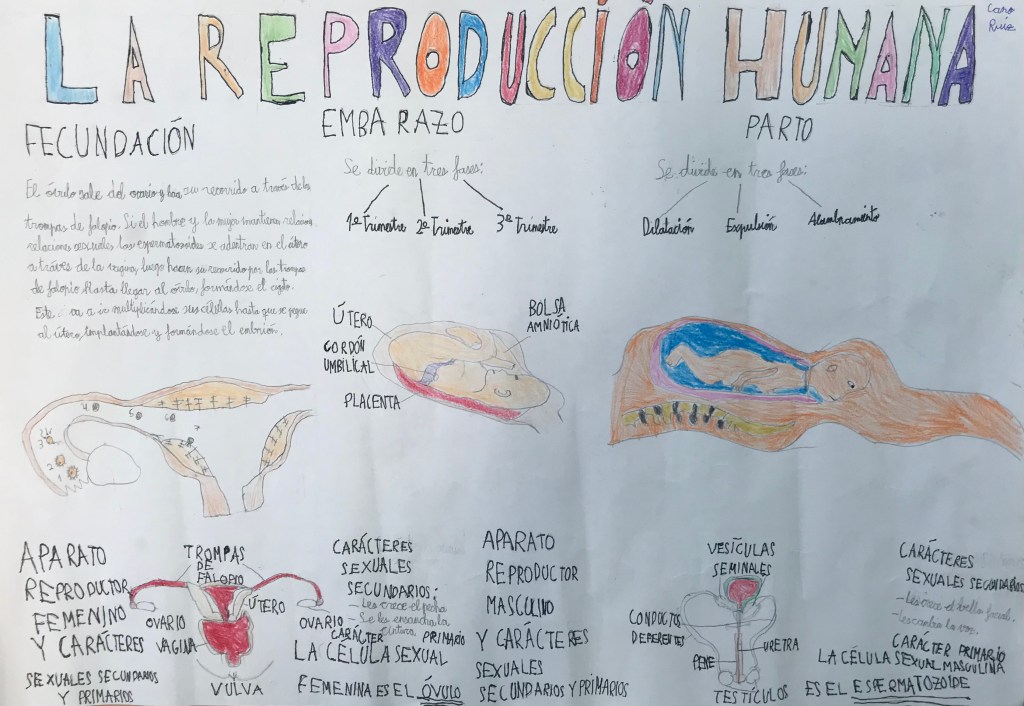 LA REPRODUCCIÓN HUMANA
Caro
Ruiz
FECUNDACIÓN
El óvulo sale del ovario y hace su recorrido a través de la
trompas de falopio. Si el hombre y la mujer mantienen
relaciones sexuales los espermatozoides se adentran en el útero
a través de la vagina, luego hacen su recorrido por las trompas
de falopio hasta llegar al óvulo, formándose el cigoto.
Este va a ir multiplicándose sus células hasta que se pegue
al útero, implantándose y formándose el embrión.
1
2
3
4
5
6
7
EMBARAZO
Se divide en tres fases:
1º Trimestre 2º Trimestre 3º Trimestre
ÚTERO
CORDÓN
UMBILICAL
PLACENTA
BOLSA
AMNIÓTICA
PARTO
Se divide en tres fases:
Dilatación Expulsión Alumbramiento
APARATO
REPRODUCTOR
FEMENINO
Y CARÁCTERES
SEXUALES SECUNDARIOS
Y PRIMARIOS
TROMPAS
DE
FALOPIO
ÚTERO
OVARIO
OVARIO
VAGINA
VULVA
CARÁCTERES
SEXUALES
SECUNDARIOS:
- Les crece el pecho
- Se les ensancha la
cintura.
CARÁCTER PRIMARIO
LA CÉLULA SEXUAL
FEMENINA ES EL ÓVULO
APARATO
REPRODUCTOR
MASCULINO
Y CARÁCTERES
SEXUALES
SECUNDARIOS Y PRIMARIOS
VESÍCULAS
SEMINALES
CONDUCTOS
DEFERENTES
URETRA
PENE
TESTÍCULOS
CARÁCTERES
SEXUALES SECUNDARIOS
- Les crece el bello facial.
la voz.
CARÁCTER PRIMARIO
LA CÉLULA SEXUAL MASCULINA
ES EL ESPERMATOZOIDE